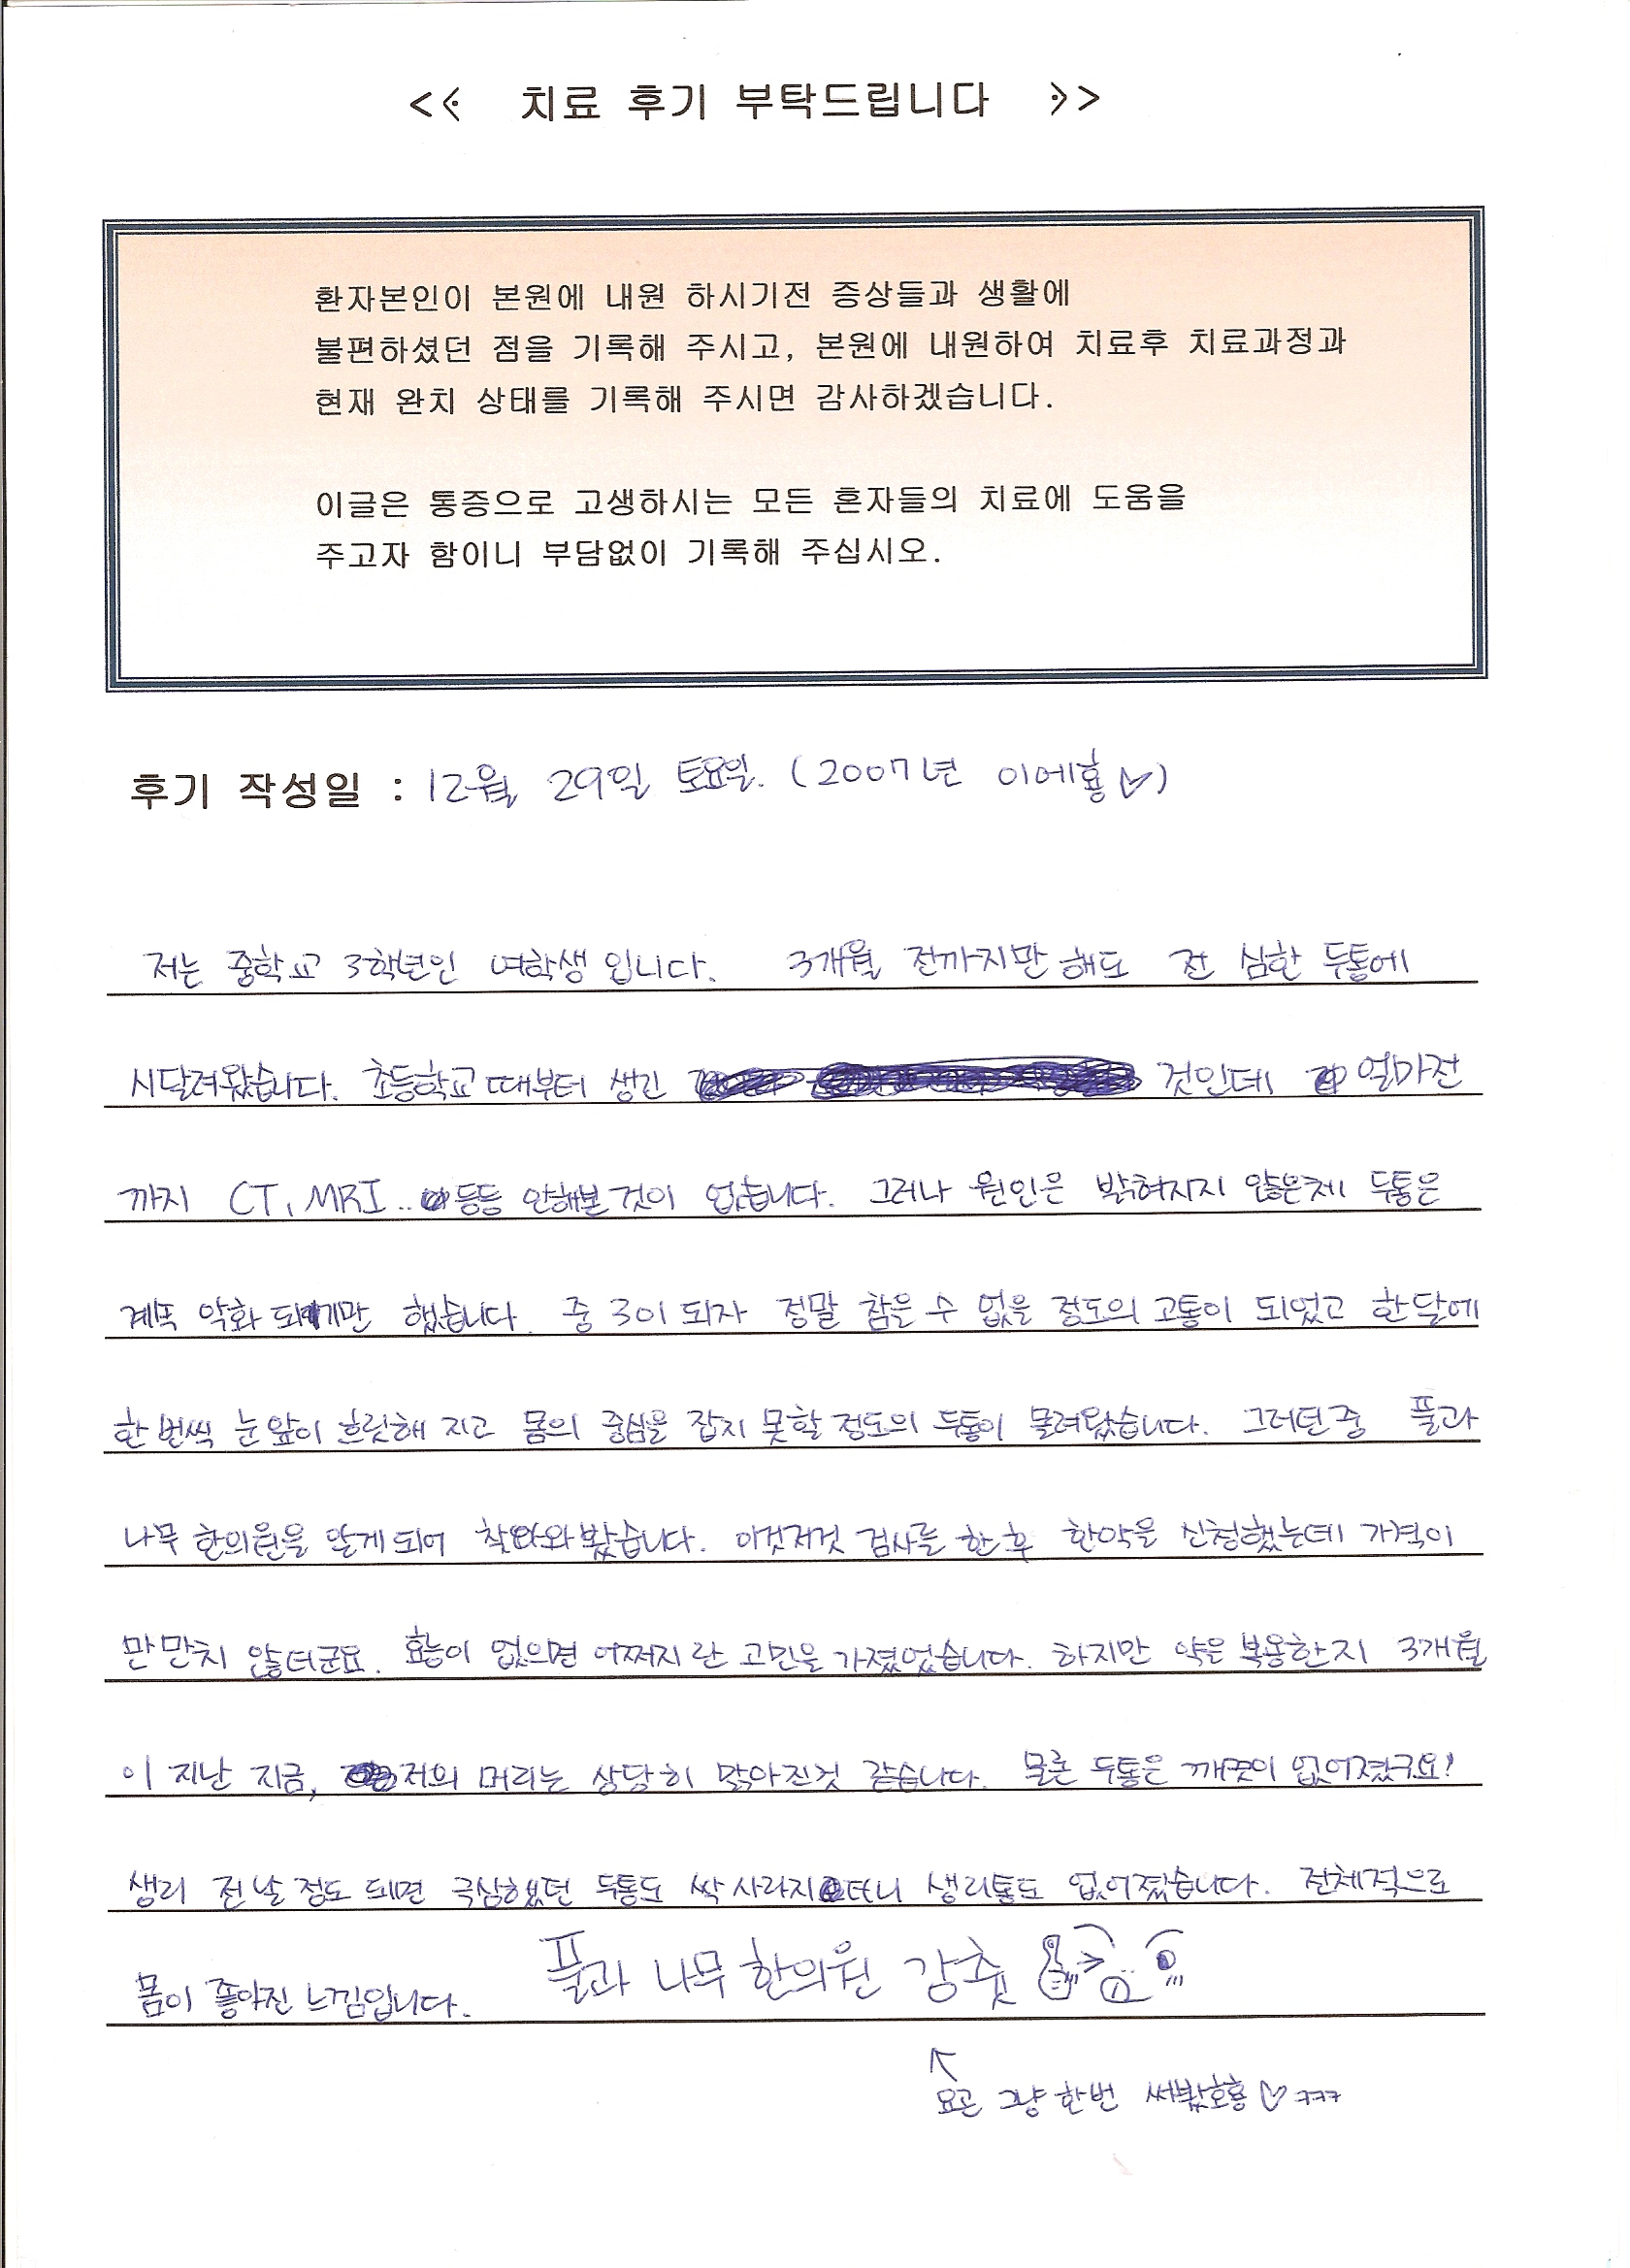 << 치료 후기 부탁드립니다 >>
환자본인이 본원에 내원 하시기전 증상들과 생활에
불편하셨던 점을 기록해 주시고, 본원에 내원하여 치료후 치료과정과
현재 완치 상태를 기록해 주시면 감사하겠습니다.
이글은 통증으로 고생하시는 모든 혼자들의 치료에 도움을
주고자 함이니 부담없이 기록해 주십시오.
후기 작성일 : 12월 29일 토요일. (2007년 이에횽♡)
저는 중학교 3학년인 여학생 입니다. 3개월 전까지만 해도 전 심한 두통에
시달려왔습니다. 초등학교 때부터 생긴 것인데 얼마전
까지 CT, MRI.. 등등 안해본 것이 없습니다. 그러나 원인은 밝혀지지 않은체 두통은
계속 악화 되기만 했습니다. 중 3이 되자 정말 참을 수 없을 정도의 고통이 되었고 한달에
한 번씩 눈 앞이 흐릿해 지고 몸의 중심을 잡지 못할 정도의 두통이 몰려왔습니다. 그러던중 풀과
나무 한의원을 알게 되어 찾아와 봤습니다. 이것저것 검사를 한 후 한약을 신청했는데 가격이
만만치 않더군요. 효능이 없으면 어쩌지 란 고민을 가졌었습니다. 하지만 약은 복용한지 3개월
이 지난 지금, 저의 머리는 상당히 맑아진것 같습니다. 물론 두통은 깨끗이 없어졌구요!
생리 전날 정도 되면 극심했던 두통도 싹 사라지더니 생리통도 없어졌습니다. 전체적으로
몸이 좋아진 느낌입니다. 풀과 나무 한의원 강춧
요곤 그냥 한번 써봤호횽♡ ㅋㅋㅋ